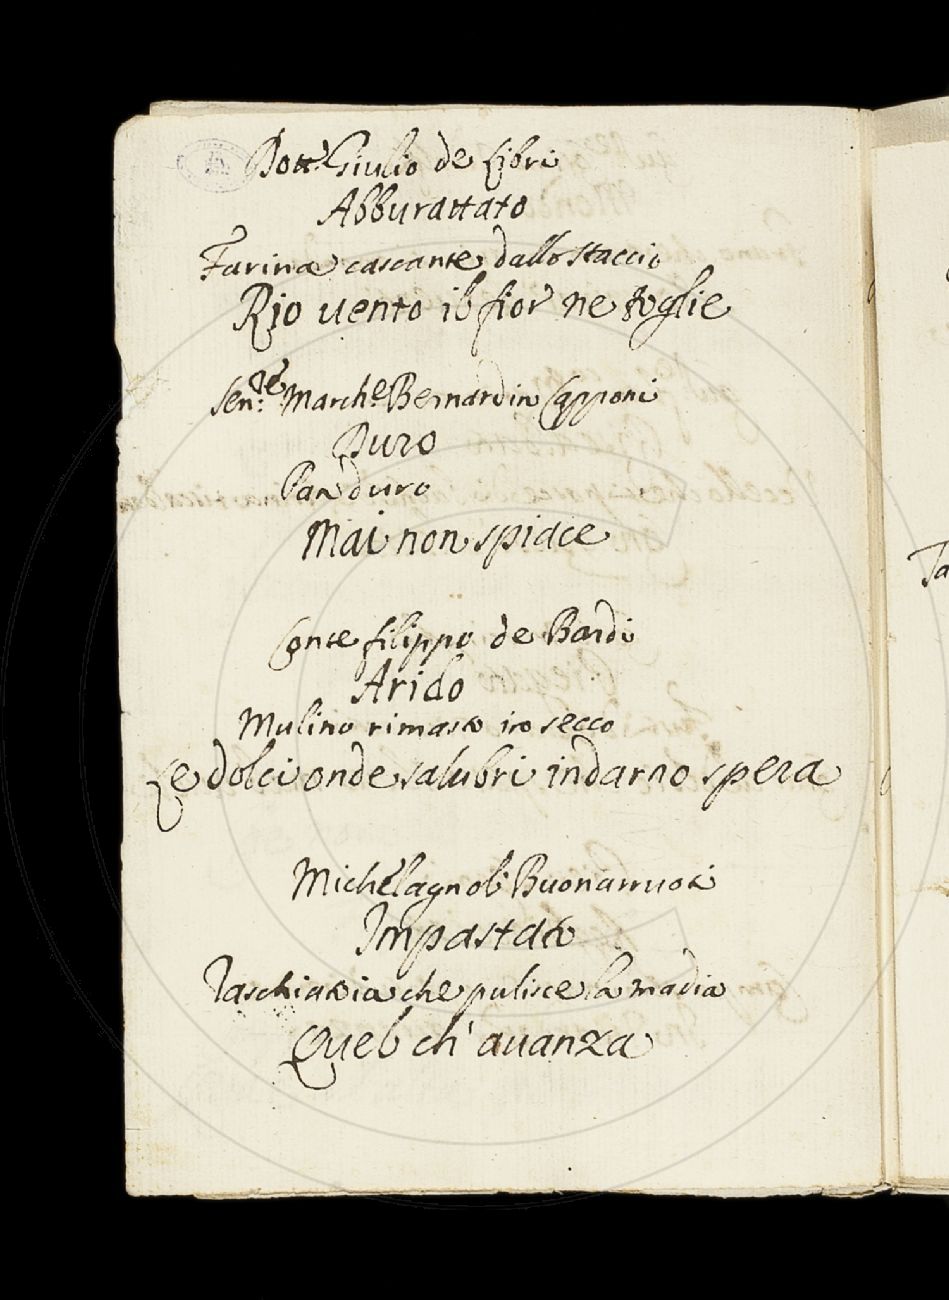 Dott.e Giulio de Libri
Abburattato
Farina cascante dallo staccio
Rio uento il fior ne toglie
Sen.re March.e Bernardin Capponi
Duro
Pan duro
Mai non spiace
Conte filippo de Bardi
Arido
Mulino rimasto in secco
Le dolci onde salubri indarno spera
Michelagnol Buonarruoti
Impastato
Raschiatoia che pulisce la madia
Quel ch' auanza